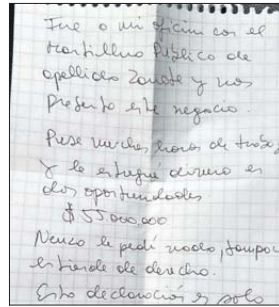 Fue a mi oficina con el
martillero Público de
apellido Zarate y nos
presento este negocio.
Puse muchas horas de trabajo
y le entregué dinero en
dos oportunidades
$ 55000,000
Nunca le pedí nada, tampoco
entiende de derecho.
Esta declaración es solo